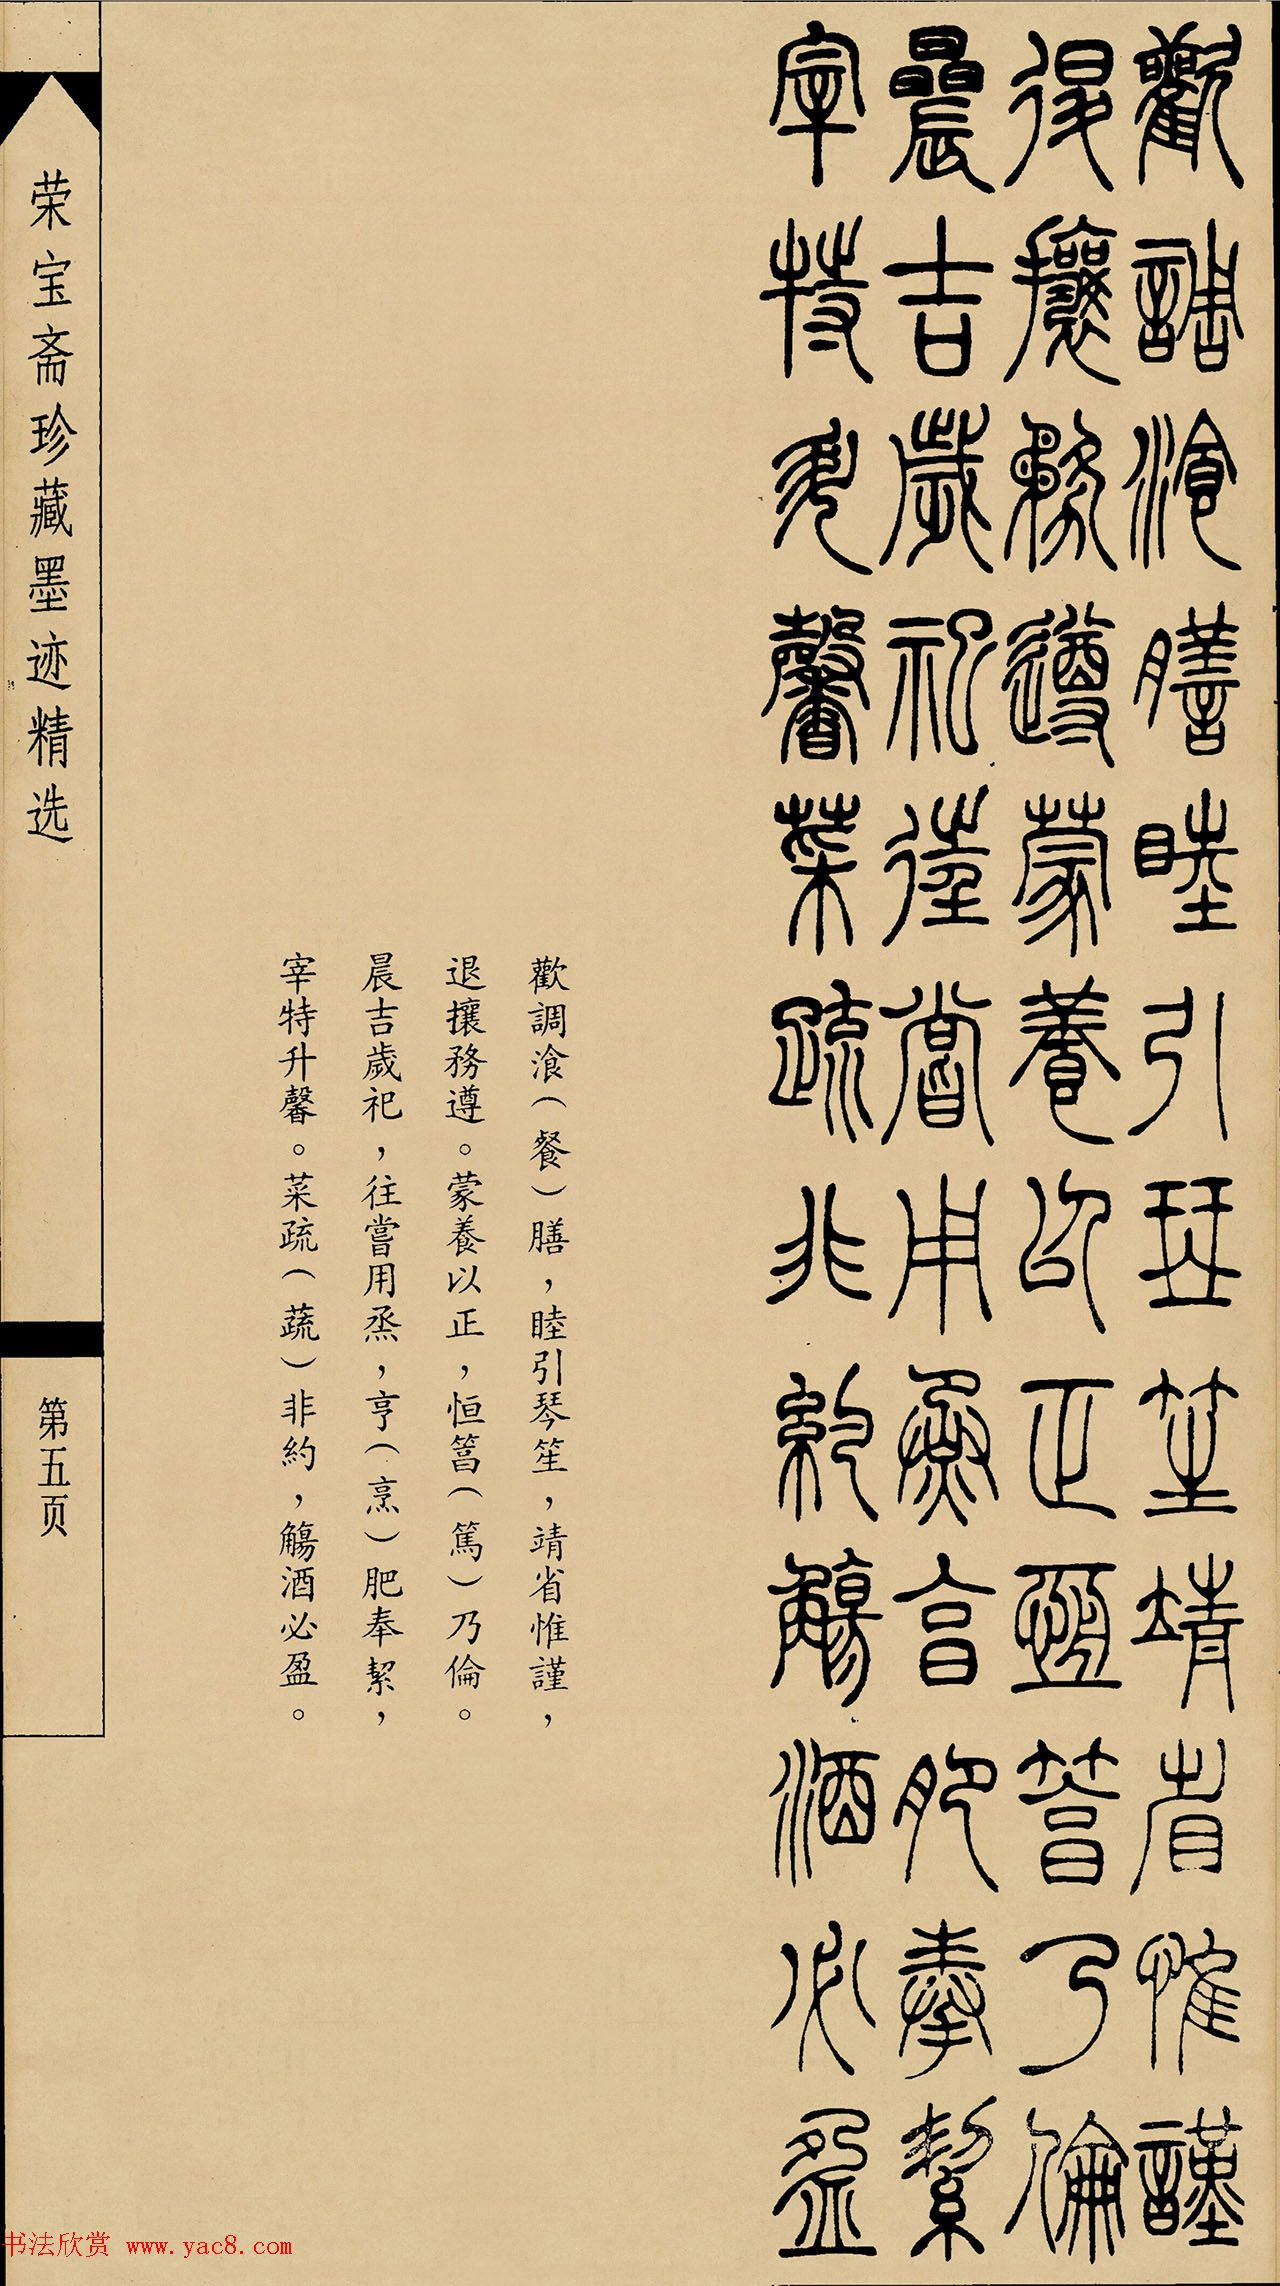 歡調飡膳睦引琴笙靖省惟謹
退攘務遵蒙養以正恒䈞乃倫
晨吉歲祀往嘗用烝亨肥奉絜
宰特升馨菜疏非約觴酒必盈
歡調飡（餐）膳，睦引琴笙，靖省惟謹，
退攘務遵。蒙養以正，恒䈞（篤）乃倫。
晨吉歲祀，往嘗用烝，亨（烹）肥奉絜，
宰特升馨。菜疏（蔬）非約，觴酒必盈。
荣宝斋珍藏墨迹精选
第五页
书法欣赏 www.yac8.com